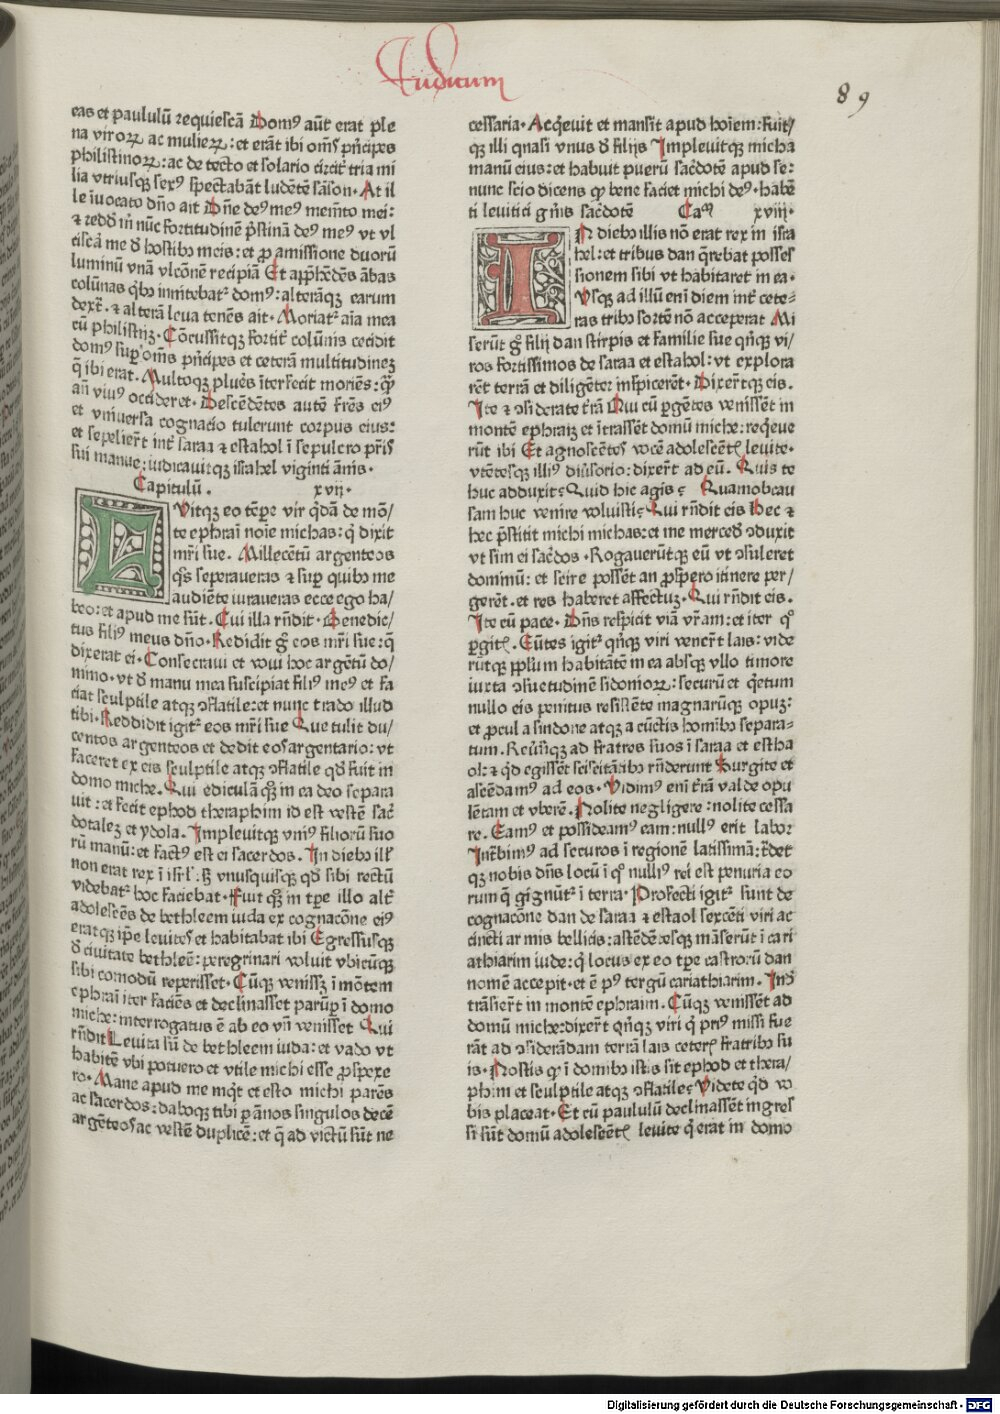 Iudicum
89
eas et paululū requiescā Domꝰ aūt erat ple
na viroꝝ ac mulieꝝ: et erāt ibi om̄s p̄ncipes
philistinoꝝ: ac de tecto et solario circit̄ tria mi
lia vtriusqꝫ sexꝰ spectabāt ludētē sāson. At il
le īuocato dn̄o ait Dn̄e deꝰ meꝰ mem̄to mei:
⁊ redd m̄ nūc fortitudinē p̄stinā deꝰ meꝰ vt vl
ciscā me d̄ hostibꝰ meis: et ꝓ amissione duorū
luminū vnā vlcōnē recipiā Et app̄hēdēs ābas
colūnas qͥbꝰ innitebat᷑ domꝰ: alterāqꝫ earum
dext᷑. ⁊ alterā leua tenēs ait. Moriat᷑ aīa mea
cū philistijs. Cōcussitqꝫ fortit᷑ colūnis cecidit
domꝰ suꝑ om̄s p̄ncipes et ceterā multitudinez
q̄ ibi erat. Multoqꝫ plures īterfecit moriēs: qͣꝫ
an̄ viuꝰ occideret. Descēdētes autē fr̄es eiꝰ
et vniuersa cognatio tulerunt corpus eius:
et sepelier̄t int᷑ saraa ⁊ estahol ī sepulcro pr̄is
sui manue: iudicauitqꝫ israhel viginti ānis.
Capitulū. xvij.
Uitqꝫ eo tēpere vir qͥdā de mō/
te ephrai noīe michas: qͥ dixit
mr̄i sue. Millecētū argenteos
qͦs seperaueras ⁊ suꝑ quibꝰ me
audiēte iuraueras ecce ego ha/
beo: et apud me sūt. Cui illa rn̄dit. Benedic/
tus filiꝰ meus dn̄o. Reddidit gͦ eos mr̄i sue: q̄
dixerat ei. Consecraui et voui hoc argētū do/
mino. vt d̄ manu mea suscipiat filiꝰ meꝰ et fa
ciat sculptile atqꝫ ɔflatile: et nunc trado illud
tibi. Reddidit igit᷑ eos mr̄i sue Que tulit du/
centos argenteos et dedit eos argentario: vt
faceret ex eis sculptile atqꝫ ɔflatile qd̄ fuit in
domo miche. Qui ediculā qͦꝫ in ea deo separa
uit: et fecit ephod theraphim id est vestē sac̄
dotalez et ydola. Impleuitqꝫ vniꝰ filiorū suo
rū manū: et factꝰ est ei sacerdos. In diebꝰ ill᷑
non erat rex ī isrl̄: sꝫ vnusquisqꝫ qd̄ sibi rectū
videbat᷑ hoc faciebat. Fuit qͦꝫ in tp̄e illo alt᷑
adolescēs de bethleem iuda ex cognacōne eiꝰ
eratqꝫ ip̄e leuites et habitabat ibi Egressusqꝫ
d̄ ciuitate bethleē: peregrinari voluit vbicūqꝫ
sibi comodū reperisset. Cūqꝫ venissꝫ ī mōtem
ephrai iter faciēs et declinasset parūꝑ ī domo
miche: interrogatus ē ab eo vn̄ venisset Qui
rn̄dit Leuita sū de bethleem iuda: et vado vt
habitē vbi potuero et vtile michi esse ꝓspexe
ro. Mane apud me inqͥt et esto michi parēs
ac sacerdos: daboqꝫ tibi ꝑ ānos singulos decē
argēteos ac vestē duplicē: et q̄ ad victū sūt ne
cessaria. Acqͥeuit et mansit apud hoīem: fuit/
qꝫ illi quasi vnus d̄ filijs Impleuitqꝫ micha
manū eius: et habuit puerū sac̄dotē apud se:
nunc scio dicens qͦ bene faciet michi deꝰ. habē
ti leuitici gn̄is sac̄dotē Caᵐ xviij.
N diebꝰ illis nō erat rex in isra
hel: et tribus dan q̄rebat posses
sionem sibi vt habitaret in ea.
Usqꝫ ad illū enī diem int᷑ cete-
ras tribꝰ sortē nō acceperat Mi
serūt gͦ filij dan stirpis et familie sue qn̄qꝫ vi/
ros fortissimos de saraa et estahol: vt explora
rēt terrā et diligēter inspicerēt. Dixer̄tqꝫ eis.
Ite ⁊ ɔsiderate t᷑rā Qui cū ꝑgētes venissēt in
montē ephraiz et ītrassēt domū miche: reqͥeue
rūt ibi Et agnoscētes vocē adolescētꝭ leuite.
vtētesqꝫ illiꝰ diuersorio: dixer̄t ad eū. Quis te
huc adduxit? Quid hic agis? Quamobcau
sam huc venire voluisti? Qui rn̄dit eis Hec ⁊
hec p̄stitit michi michas: et me merced̄ ɔduxit
vt sim ei sac̄dos. Rogauerūtqꝫ eū vt ɔsuleret
dominū: et scire possēt an ꝓspero itinere per/
gerēt. et res haberet affectuꝫ. Qui rn̄dit eis.
Ite cū pace. Dn̄s respicit viā vr̄am: et iter qͦ
ꝑgitꝭ. Eūtes igit᷑ qn̄qꝫ viri vener̄t lais: vide
rūtqꝫ pp̄lum habitātē in ea absqꝫ vllo timore
iuxta ɔsuetudinē sidonioꝝ: securū et qͥetum
nullo eis penitus resistēte magnarūqꝫ opuꝫ:
et ꝓcul a sindone atqꝫ a cūctis homībꝰ separa-
tum. Reuersiqꝫ ad fratres suos ī saraa et estha
ol: ⁊ qͥd egissēt sciscitātibꝰ rn̄derunt Surgite et
ascēdamꝰ ad eos. Vidimꝰ enī t᷑rā valde opu
lētam et vberē. Nolite negligere: nolite cessa
re. Eamꝰ et possideamꝰ eam: nullꝰ erit labor
Intrabimꝰ ad securos ī regionē latissimā: t᷑det
qꝫ nobis dn̄s locū ī qͦ nulliꝰ rei est penuria eo
rum q̄ gignūt᷑ ī terra. Profecti igit᷑ sunt de
cognacōne dan de saraa ⁊ estaol sexcēti viri ac
cincti armis bellicis: ascēdētesqꝫ māserūt ī cari
athiarim iude: qͥ locus ex eo tp̄e castrorū dan
nomē accepit. et ē pꝰ tergū cariathiarim. Inde
trāsier̄t in montē ephraim. Cūqꝫ venissēt ad
domū miche: dixer̄t qn̄qꝫ viri qͥ priꝰ missi fue
rāt ad ɔsiderādam terrā lais ceterꝭ fratribꝰ su
is. Nostis qͦ ī domibꝰ istis sit ephod et thera/
phim et sculptile atqꝫ ɔflatile? Videte qͥd vo
bis placeat. Et cū paululū declinassēt ingres
si sūt domū adolescētꝭ leuite qͥ erat in domo
Digitalisierung gefördert durch die Deutsche Forschungsgemeinschaft - DFG